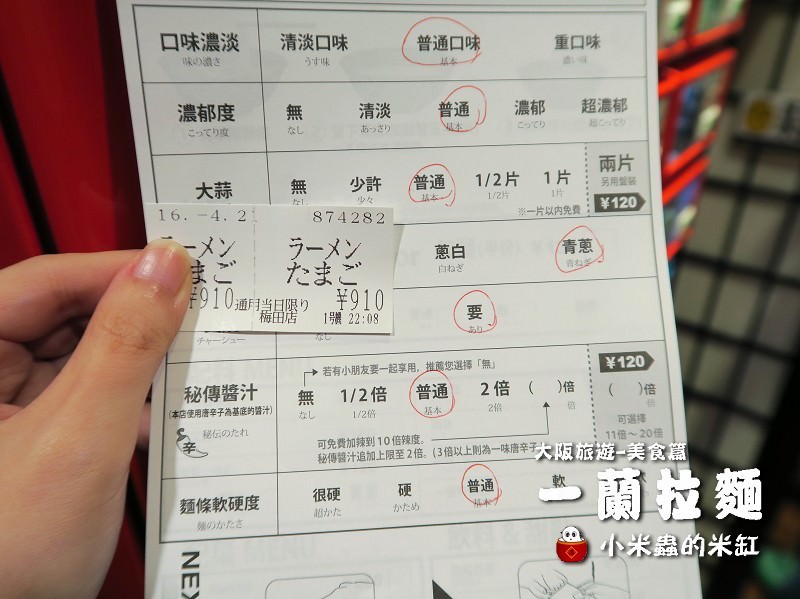 口味濃淡 清淡口味 普通口味 重口味
味の濃さ うす味 基本 濃い味
濃郁度 無 清淡 普通 濃郁 超濃郁
こってり度 なし あっさり 基本 こってり 超こってり
大蒜 無 少許 普通 1/2片 1片 兩片
なし 少々 基本 1/2片 1片 另用盤裝
※一片以內免費 ¥120
16.-4.2 874282
ラーメン ラーメン
たまご たまご
¥910 ¥910
通用当日限り
梅田店 1號 22:08
蔥白 青蔥
白ねぎ 青ねぎ
要
チャーシュー なし あり
若有小朋友要一起享用，推薦您選擇「無」 ¥120
秘傳醬汁 無 1/2倍 普通 2倍 ( )倍 ( )倍
(本店使用唐辛子為基底的醬汁) なし 1/2倍 基本 2倍 倍 倍
秘伝のたれ
辛
可免費加辣到10倍辣度。
秘傳醬汁追加上限至2倍。(3倍以上則為一味唐辛子
可選擇
11倍～20倍
麵條軟硬度 很硬 硬 普通 軟
麺のかたさ 超かた かため 基本
NEX
大阪旅遊-美食篇
一蘭拉麵
小米蟲的米缸